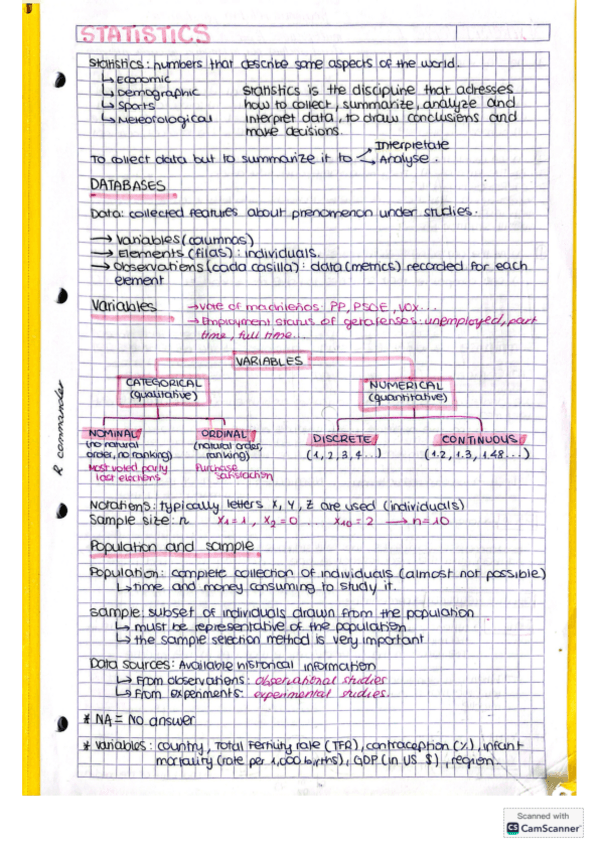 STATISTICS
Statistics: numbers that describe some aspects of the world.
↳ Economic
↳ Demographic
↳ Sports
↳ Meteorological
Statistics is the discipline that adresses
how to collect, summarize, analyze and
interpret data, to draw conclusions and
make decisions.
To collect data but to summarize it to
Interpretate
Analyse.
DATABASES
Data: collected features about phenomenon under studies.
→ Variables (columnas)
→ Elements (filas): individuals.
→ Observations (cada casilla): data (metrics) recorded for each
element
Variables
→ Vote of madrileños: PP, PSOE, VOX...
→ Employment status of getafenses: unemployed, part
time, full time...
R commander
VARIABLES
CATEGORICAL
(qualitative)
NUMERICAL
(quantitative)
NOMINAL
(no natural
order, no ranking)
Most voted party
last elections
ORDINAL
(natural order,
ranking)
Purchase
satisfaction
DISCRETE
(1, 2, 3, 4...)
CONTINUOUS
(1.2, 1.3, 1.48...)
Notations: typically letters X, Y, Z are used (individuals)
Sample size: n x₁=1, x₂=0 ... x₁₀=2 → n=10
Population and sample
Population: complete collection of individuals (almost not possible)
↳ time and money consuming to study it.
Sample: subset of individuals drawn from the population
↳ must be representative of the population
↳ the sample selection method is very important
Data sources: Available historical information
↳ From observations: observational studies
↳ From experiments: experimental studies.
* NA = No answer
* Variables: country, Total Fertility rate (TFR), contraception (%), infant
mortality (rate per 1,000 births), GDP (in US $), region.
Scanned with
CS CamScanner